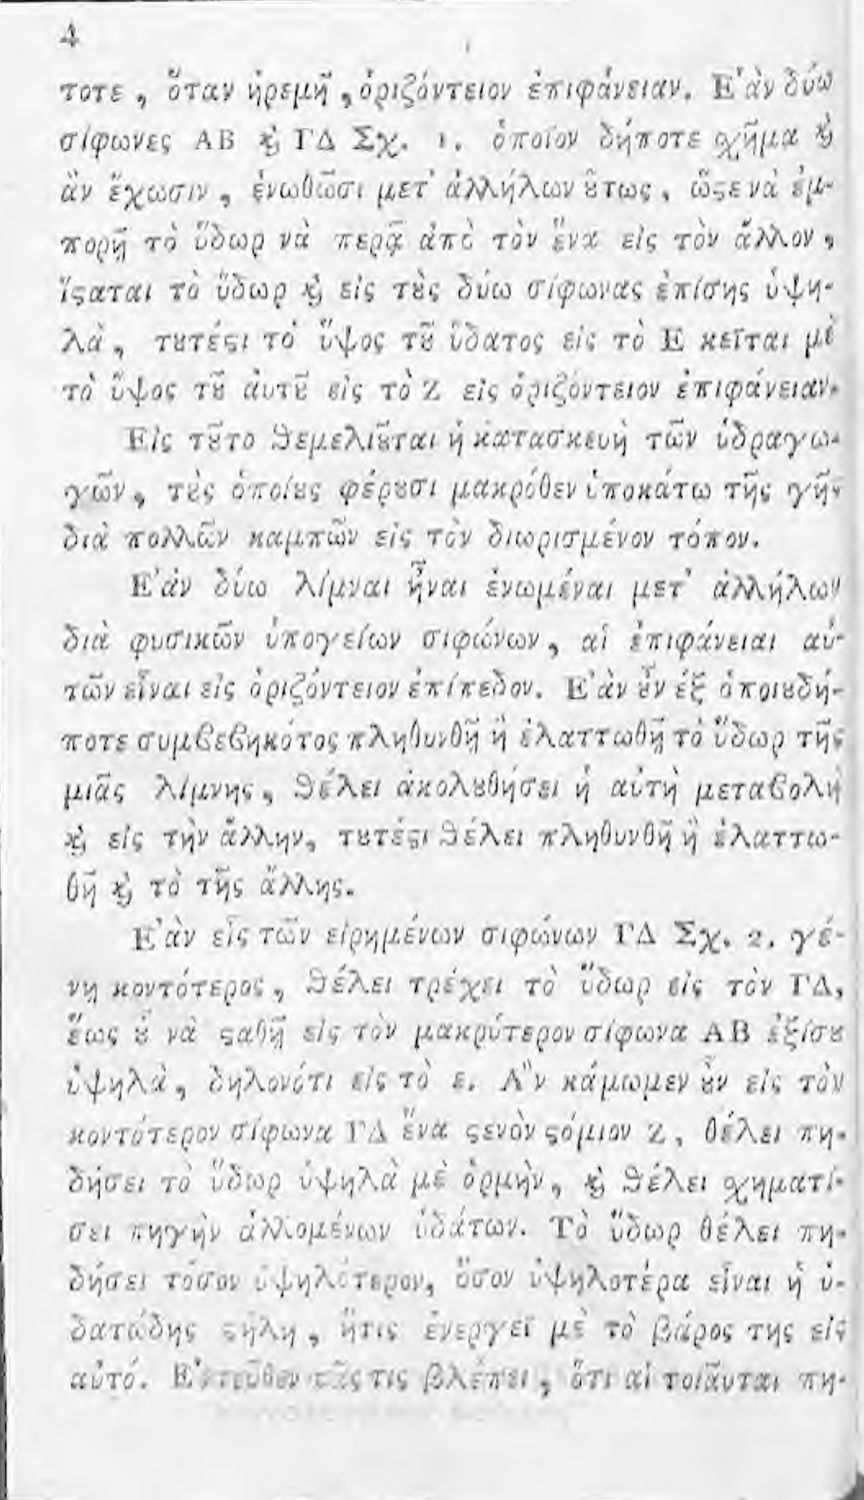 4
τοτε, ὅταν ἠρεμῇ, ὁριζόντειον ἐπιφάνειαν. Ἐὰν δύω
σίφωνες ΑΒ ϗ ΓΔ Σχ. 1. ὁποῖον δήποτε σχῆμα ϗ
ἂν ἔχωσιν, ἑνωθῶσι μετ' ἀλλήλων ȣ̔́τως, ὥϛε νὰ ἐμ-
πορῇ τὸ ὕδωρ νὰ περᾷ ἀπὸ τὸν ἕνα εἰς τὸν ἄλλον,
ἵϛαται τὸ ὕδωρ ϗ εἰς τȣ̀ς δύω σίφωνας ἐπίσης ὑψη-
λὰ, τȣτέϛι τὸ ὕψος τȣ͂ ὕδατος εἰς τὸ Ε κεῖται μὲ
τὸ ὕψος τȣ͂ ἀυτȣ͂ εἰς τὸ Ζ εἰς ὁριζόντειον ἐπιφάνειαν.
Εἰς τȣ͂το θεμελιȣ͂ται ἡ κατασκευὴ τῶν ὑδραγω-
γῶν, τȣ̀ς ὁποίȣς φέρȣσι μακρόθεν ὑποκάτω τῆς γῆς
διὰ πολλῶν καμπῶν εἰς τὸν διωρισμένον τόπον.
Ἐὰν δύω λίμναι ἦναι ἑνωμέναι μετ' ἀλλήλων
διὰ φυσικῶν ὑπογείων σιφώνων, αἱ ἐπιφάνειαι αὐ-
τῶν εἶναι εἰς ὁριζόντειον ἐπίπεδον. Ἐὰν ȣ̓͂ν ἐξ ὁποιȣδή-
ποτε συμβεβηκότος πληθυνθῇ ἢ ἐλαττωθῇ τὸ ὕδωρ τῆς
μιᾶς λίμνης, θέλει ἀκολȣθήσει ἡ αὐτὴ μεταβολὴ
ϗ εἰς τὴν ἄλλην, τȣτέϛι θέλει πληθυνθῇ ἢ ἐλαττω-
θῇ ϗ τὸ τῆς ἄλλης.
Ἐὰν εἷς τῶν εἰρημένων σιφώνων ΓΔ Σχ. 2. γέ-
νῃ κοντότερος, θέλει τρέχει τὸ ὕδωρ εἰς τὸν ΓΔ,
ἕως ȣ̔͂ νὰ ϛαθῇ εἰς τὸν μακρύτερον σίφωνα ΑΒ ἐξίσȣ
ὑψηλὰ, δηλονότι εἰς τὸ ε. Ἂν κάμωμεν ȣ̓͂ν εἰς τὸν
κοντότερον σίφωνα ΓΔ ἕνα ϛενὸν ϛόμιον Ζ, θέλει πη-
δήσει τὸ ὕδωρ ὑψηλὰ μὲ ὁρμὴν, ϗ θέλει σχηματί-
σει πηγὴν ἁλλομένων ὑδάτων. Τὸ ὕδωρ θέλει πη-
δήσει τόσον ὑψηλότερον, ὅσον ὑψηλοτέρα εἶναι ἡ ὑ-
δατώδης ϛήλη, ἥτις ἐνεργεῖ μὲ τὸ βάρος της εἰς
αὐτό. Ἐντεῦθεν πᾶς τις βλέπει, ὅτι αἱ τοιαῦται πη-